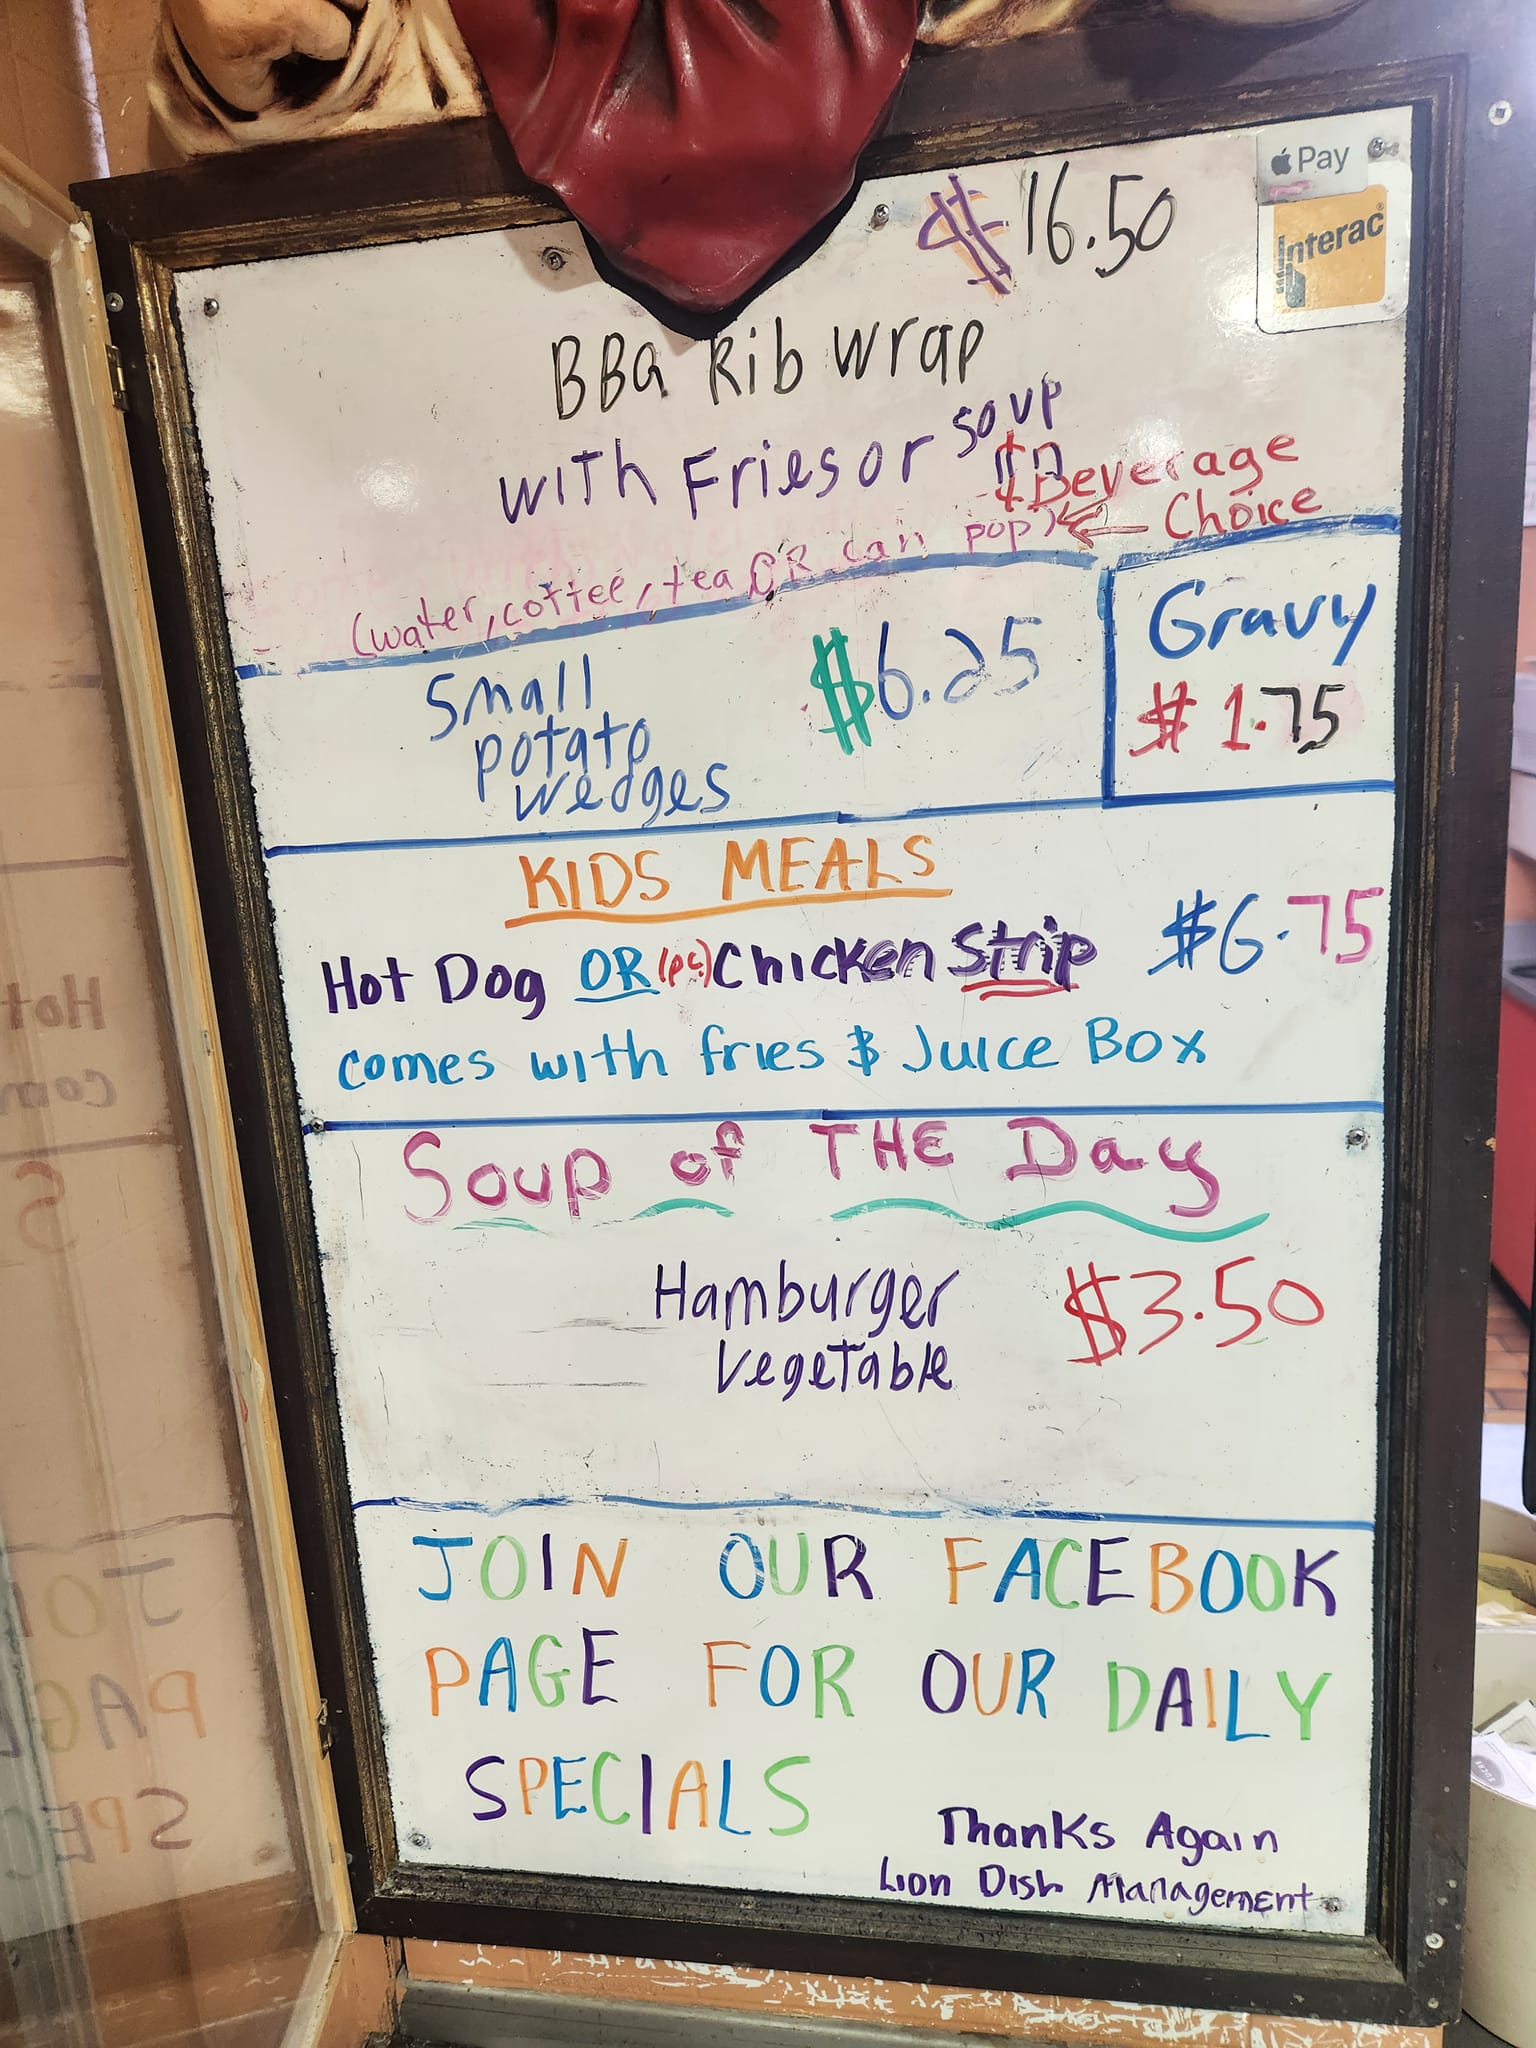 Pay
Interac
$16.50
BBQ Rib Wrap
with Fries or soup
$ Beverage
(water, coffee, tea OR can pop) ← Choice
Small
potato
wedges
$6.25
Gravy
$1.75
KIDS MEALS
Hot Dog OR (1pc.) Chicken Strip $6.75
comes with fries $ Juice Box
Soup of THE Day
Hamburger
Vegetable
$3.50
JOIN OUR FACEBOOK
PAGE FOR OUR DAILY
SPECIALS
Thanks Again
Lion Dish Management